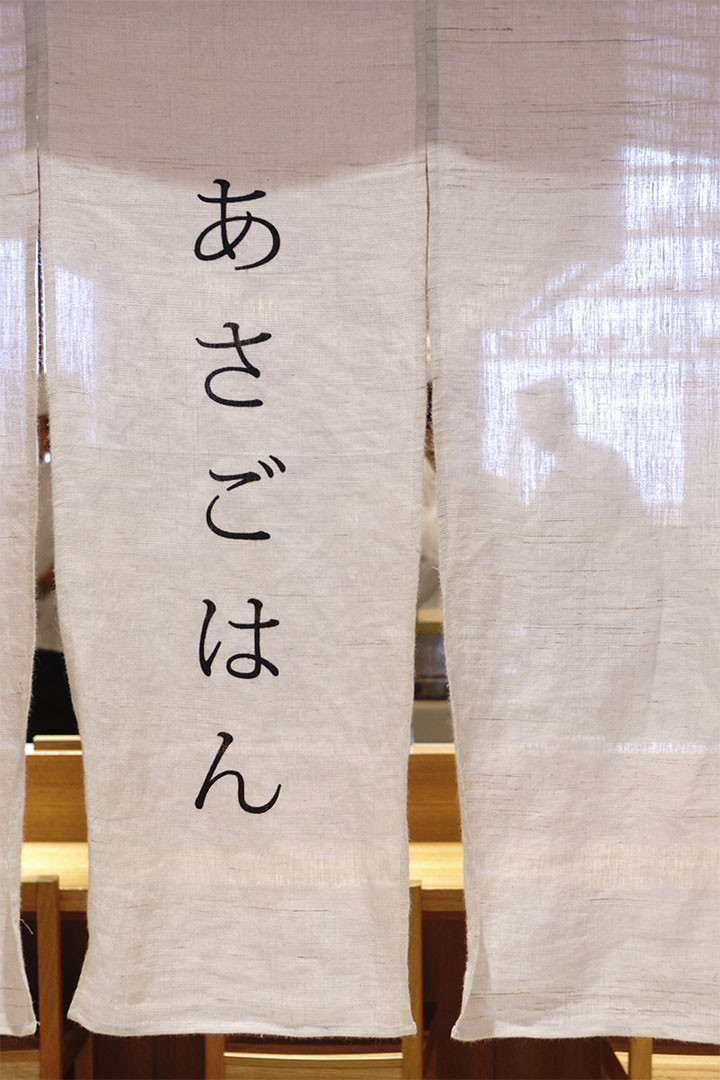 あさごはん